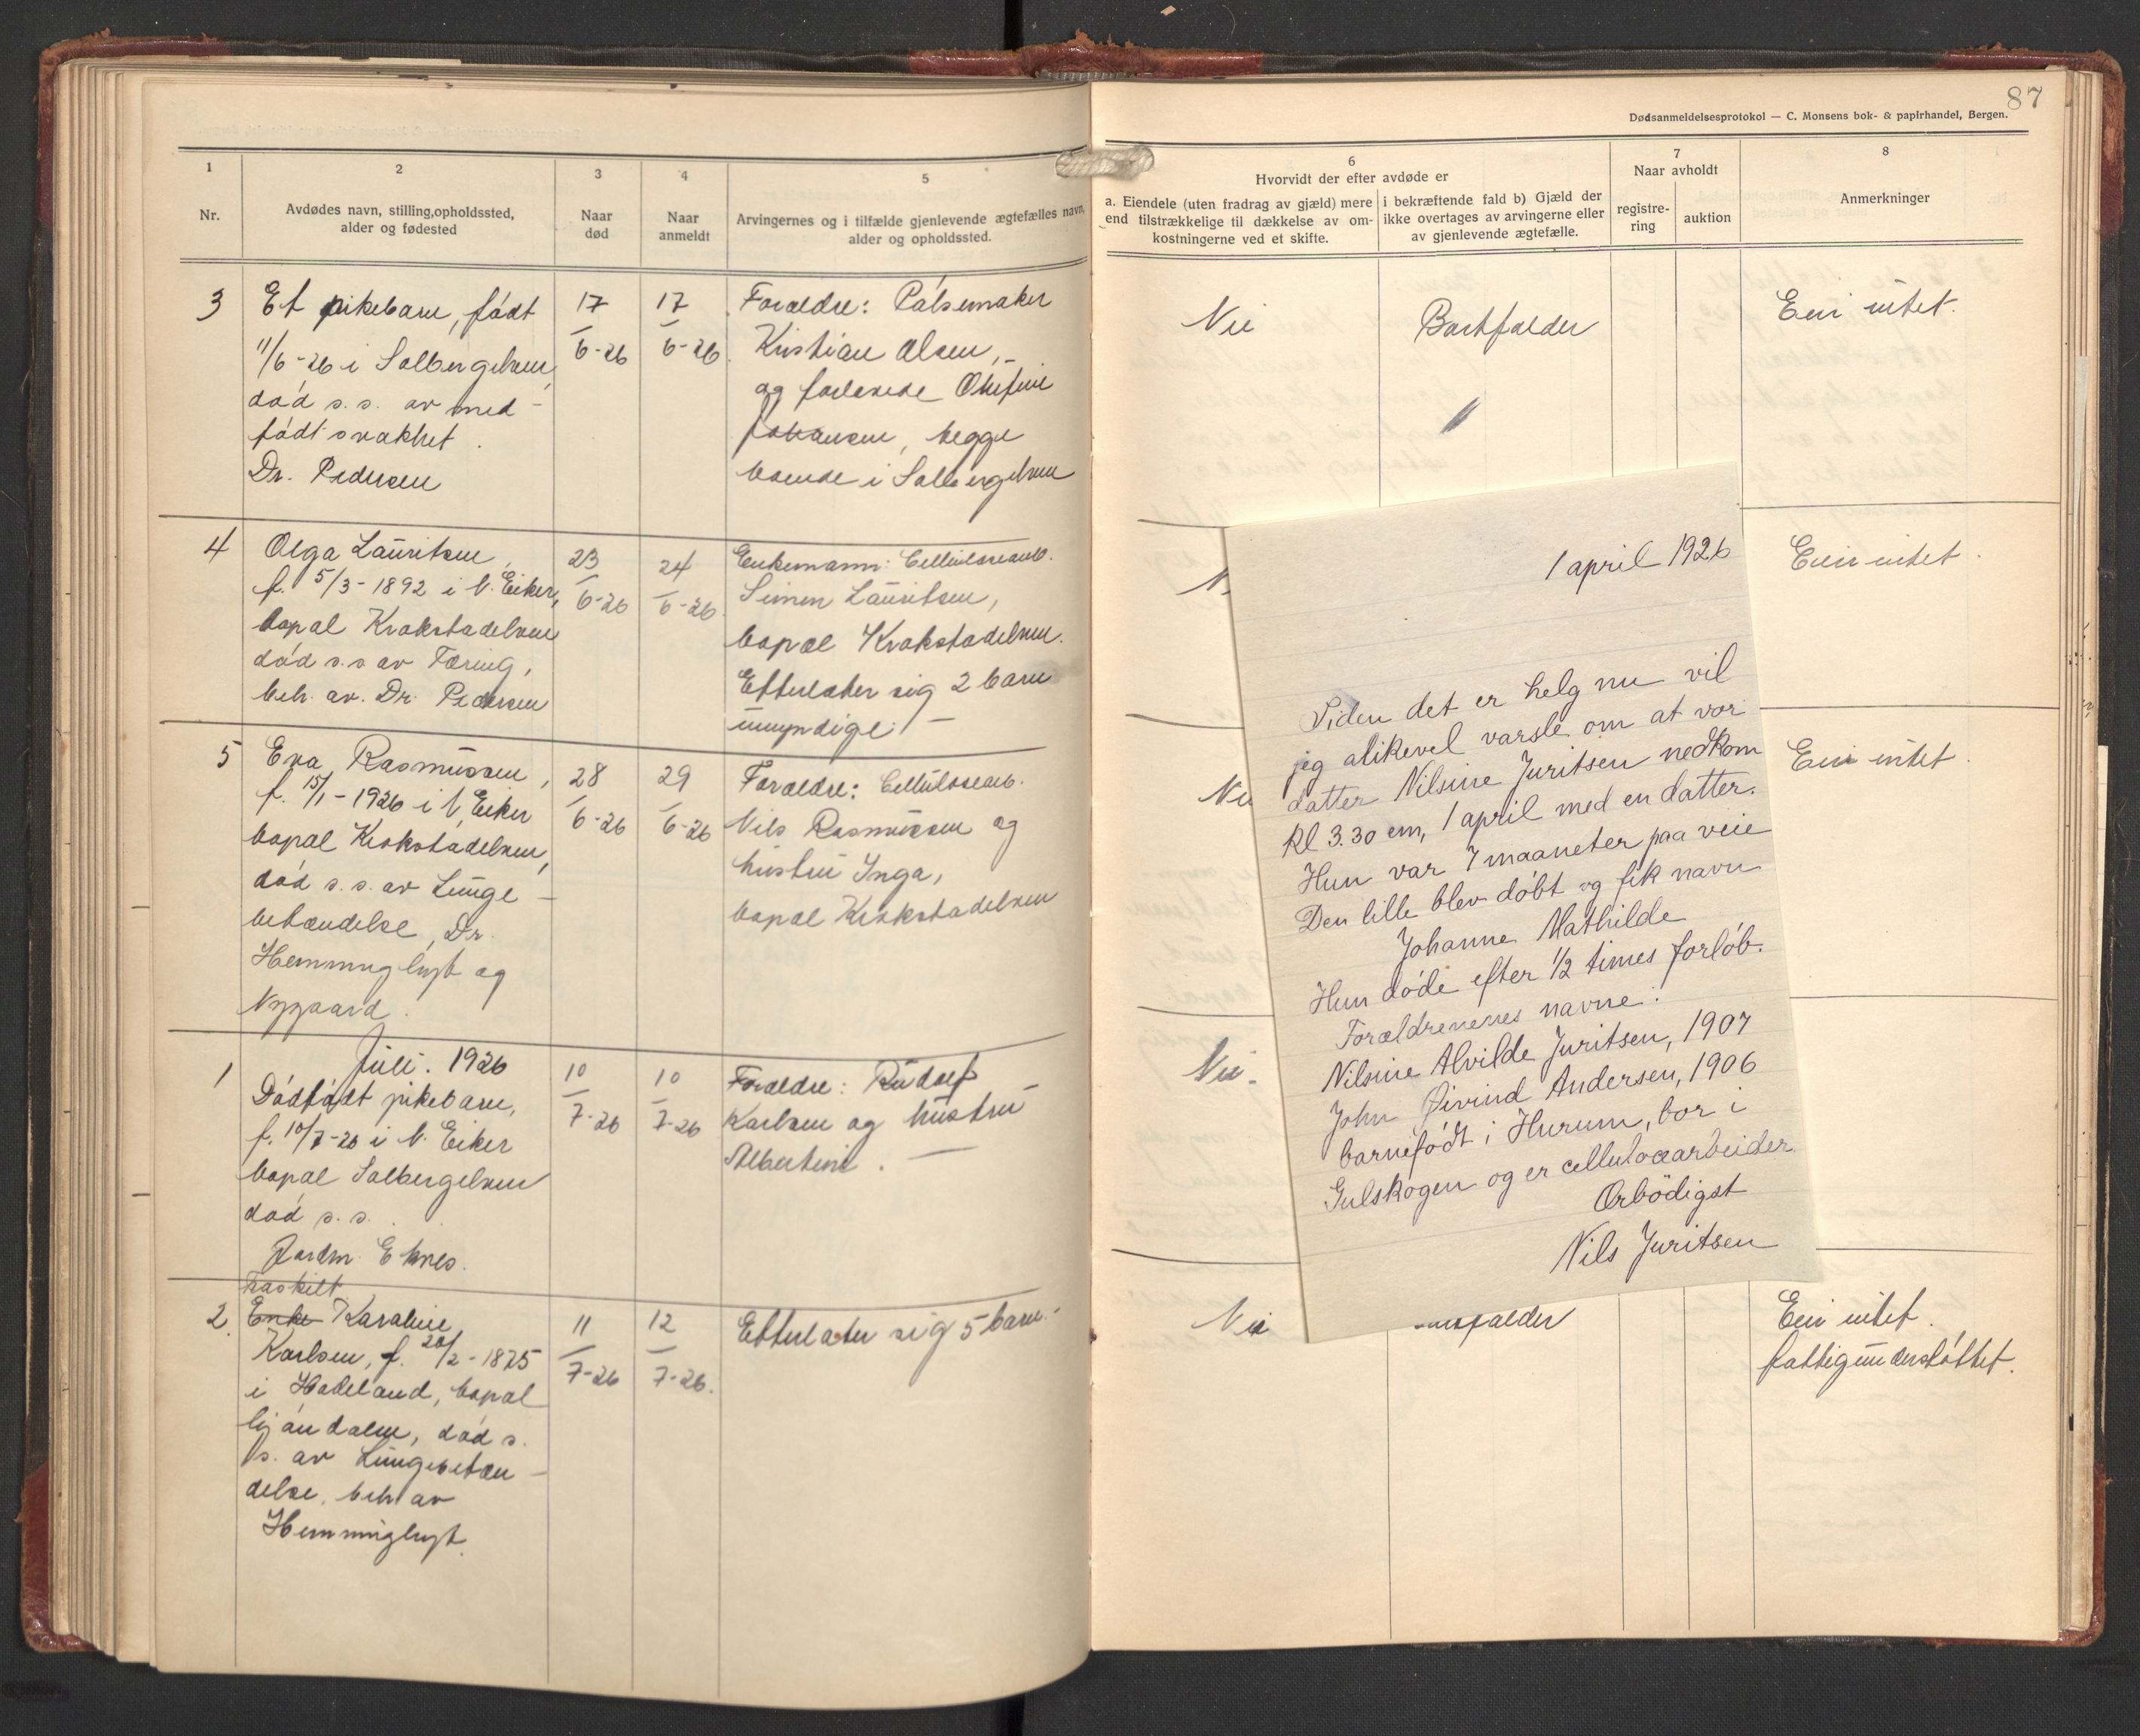 87
Dødsanmeldelsesprotokol — C. Monsens bok- & papirhandel, Bergen.
1
Nr.
2
Avdødes navn, stilling, opholdssted,
alder og fødested
3
Naar
død
4
Naar
anmeldt
5
Arvingernes og i tilfælde gjenlevende ægtefælles navn,
alder og opholdssted.
6
Hvorvidt der efter avdøde er
a. Eiendele (uten fradrag av gjæld) mere
end tilstrækkelige til dækkelse av om-
kostningerne ved et skifte.
i bekræftende fald b) Gjæld der
ikke overtages av arvingerne eller
av gjenlevende ægtefælle.
7
Naar avholdt
registre-
ring
auktion
8
Anmerkninger
3
Et pikebarn, født
11/6-26 i Solbergelven,
død s.s. av med-
født svakhet.
Dr. Pedersen
17/6-26
17/6-26
Foræld­re: Pølsemaker
Kristian Olsen,
og fraskilte
Johansen, begge
boende i Solbergelven
Nei
Bortfalder
Eier intet.
4
Olga Lauritsen,
f. 5/3-1892 i N. Eiker,
bopæl Krokstadelven
død s.s. av Tæring,
beh. av. Dr. Pedersen
23/6-26
24/6-26
Enkemann: Cellulosearb.
Simen Lauritsen,
bopæl Krokstadelven.
Efterlater sig 2 barn
umyndige. —
N
Eier intet.
5
Eva Rasmussen,
f. 15/1-1926 i N. Eiker
bopæl Krokstadelven,
død s.s. av Lunge-
betændelse, Dr.
Hemminghyt og
Nygaard.
28/6-26
29/6-26
Forældre: Cellulosearb.
Nils Rasmussen og
hustru Inga,
bopæl Krokstadelven
Nei
Eier intet.
Juli. 1926
1
Dødfødt pikebarn,
f. 10/7-26 i N. Eiker
bopæl Solbergelven
død s.s.
Jordm. Eknes.
10/7-26
10/7-26
Forældre: Rudolf
Karlsen og hustru
Albertine. —
Nei.
2.
fraskilt
Enke Karoline
Karlsen, f. 20/2-1875
i Hadeland, bopæl
død s.
s. av Lungebetæn-
delse, beh av
Hemminghyt.
11/7-26
12/7-26.
Efterlater sig 5 barn.-
Nei
falder
Eier intet.
fattigunderstøttet.
1 april 1926
Siden det er helg nu vil
jeg alikevel varsle om at vor
datter Nilsine Juritsen nedkom
kl 3.30 em, 1 april med en datter.
Hun var 7 maaneter paa veie
Den lille blev døbt og fik navn
Johanne Mathilde
Hun døde efter 1/2 times forløb.
Forældrenenes navne:
Nilsine Alvilde Juritsen, 1907
John Øivind Andersen, 1906
barnefødt i Hurum, bor i
Gulskogen og er celluloсearbeider
Ærbödigst
Nils Juritsen